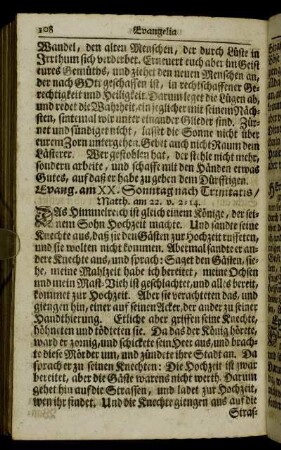 108 Evangelia
Wandel, den alten Menschen, der durch Lüste in
Irrthum sich verderbet. Erneuert euch aber im Geist
eures Gemüths, und ziehet den neuen Menschen an,
der nach GOtt geschaffen ist, in rechtschaffener Ge-
rechtigkeit und Heiligkeit. Darum leget die Lügen ab,
und redet die Wahrheit, ein jeglicher mit seinem Näch-
sten, sintemal wir unter einander Glieder sind. Zür-
net und sündiget nicht, lasset die Sonne nicht über
eurem Zorn untergehen. Gebet auch nicht Raum dem
Lästerer. Wer gestohlen hat, der stehle nicht mehr,
sondern arbeite, und schaffe mit den Händen etwas
Gutes, auf daß er habe zu geben dem Dürfftigen.
Evang. am XX. Sonntag nach Trinitatis/
Matth. am 22. v. 2-14.
DAs Himmelreich ist gleich einem Könige, der sei-
nem Sohn Hochzeit machte. Und sandte seine
Knechte aus, daß sie den Gästen zur Hochzeit rufften,
und sie wolten nicht kommen. Abermal sandte er an-
dere Knechte aus, und sprach: Saget den Gästen, sie-
he, meine Mahlzeit habe ich bereitet, meine Ochsen
und mein Mast-Vieh ist geschlachtet, und alles bereit,
kommet zur Hochzeit. Aber sie verachteten das, und
giengen hin, einer auf seinen Acker, der ander zu seiner
Handthierung. Etliche aber griffen seine Knechte,
höhneten und tödteten sie. Da das der König hörete,
ward er zornig, und schickete sein Heer aus, und brach-
te diese Mörder um, und zündete ihre Stadt an. Da
sprach er zu seinen Knechten: Die Hochzeit ist zwar
bereitet, aber die Gäste warens nicht werth. Darum
gehet hin auf die Strassen, und ladet zur Hochzeit,
wen ihr findet. Und die Knechte giengen aus auf die
Stras-